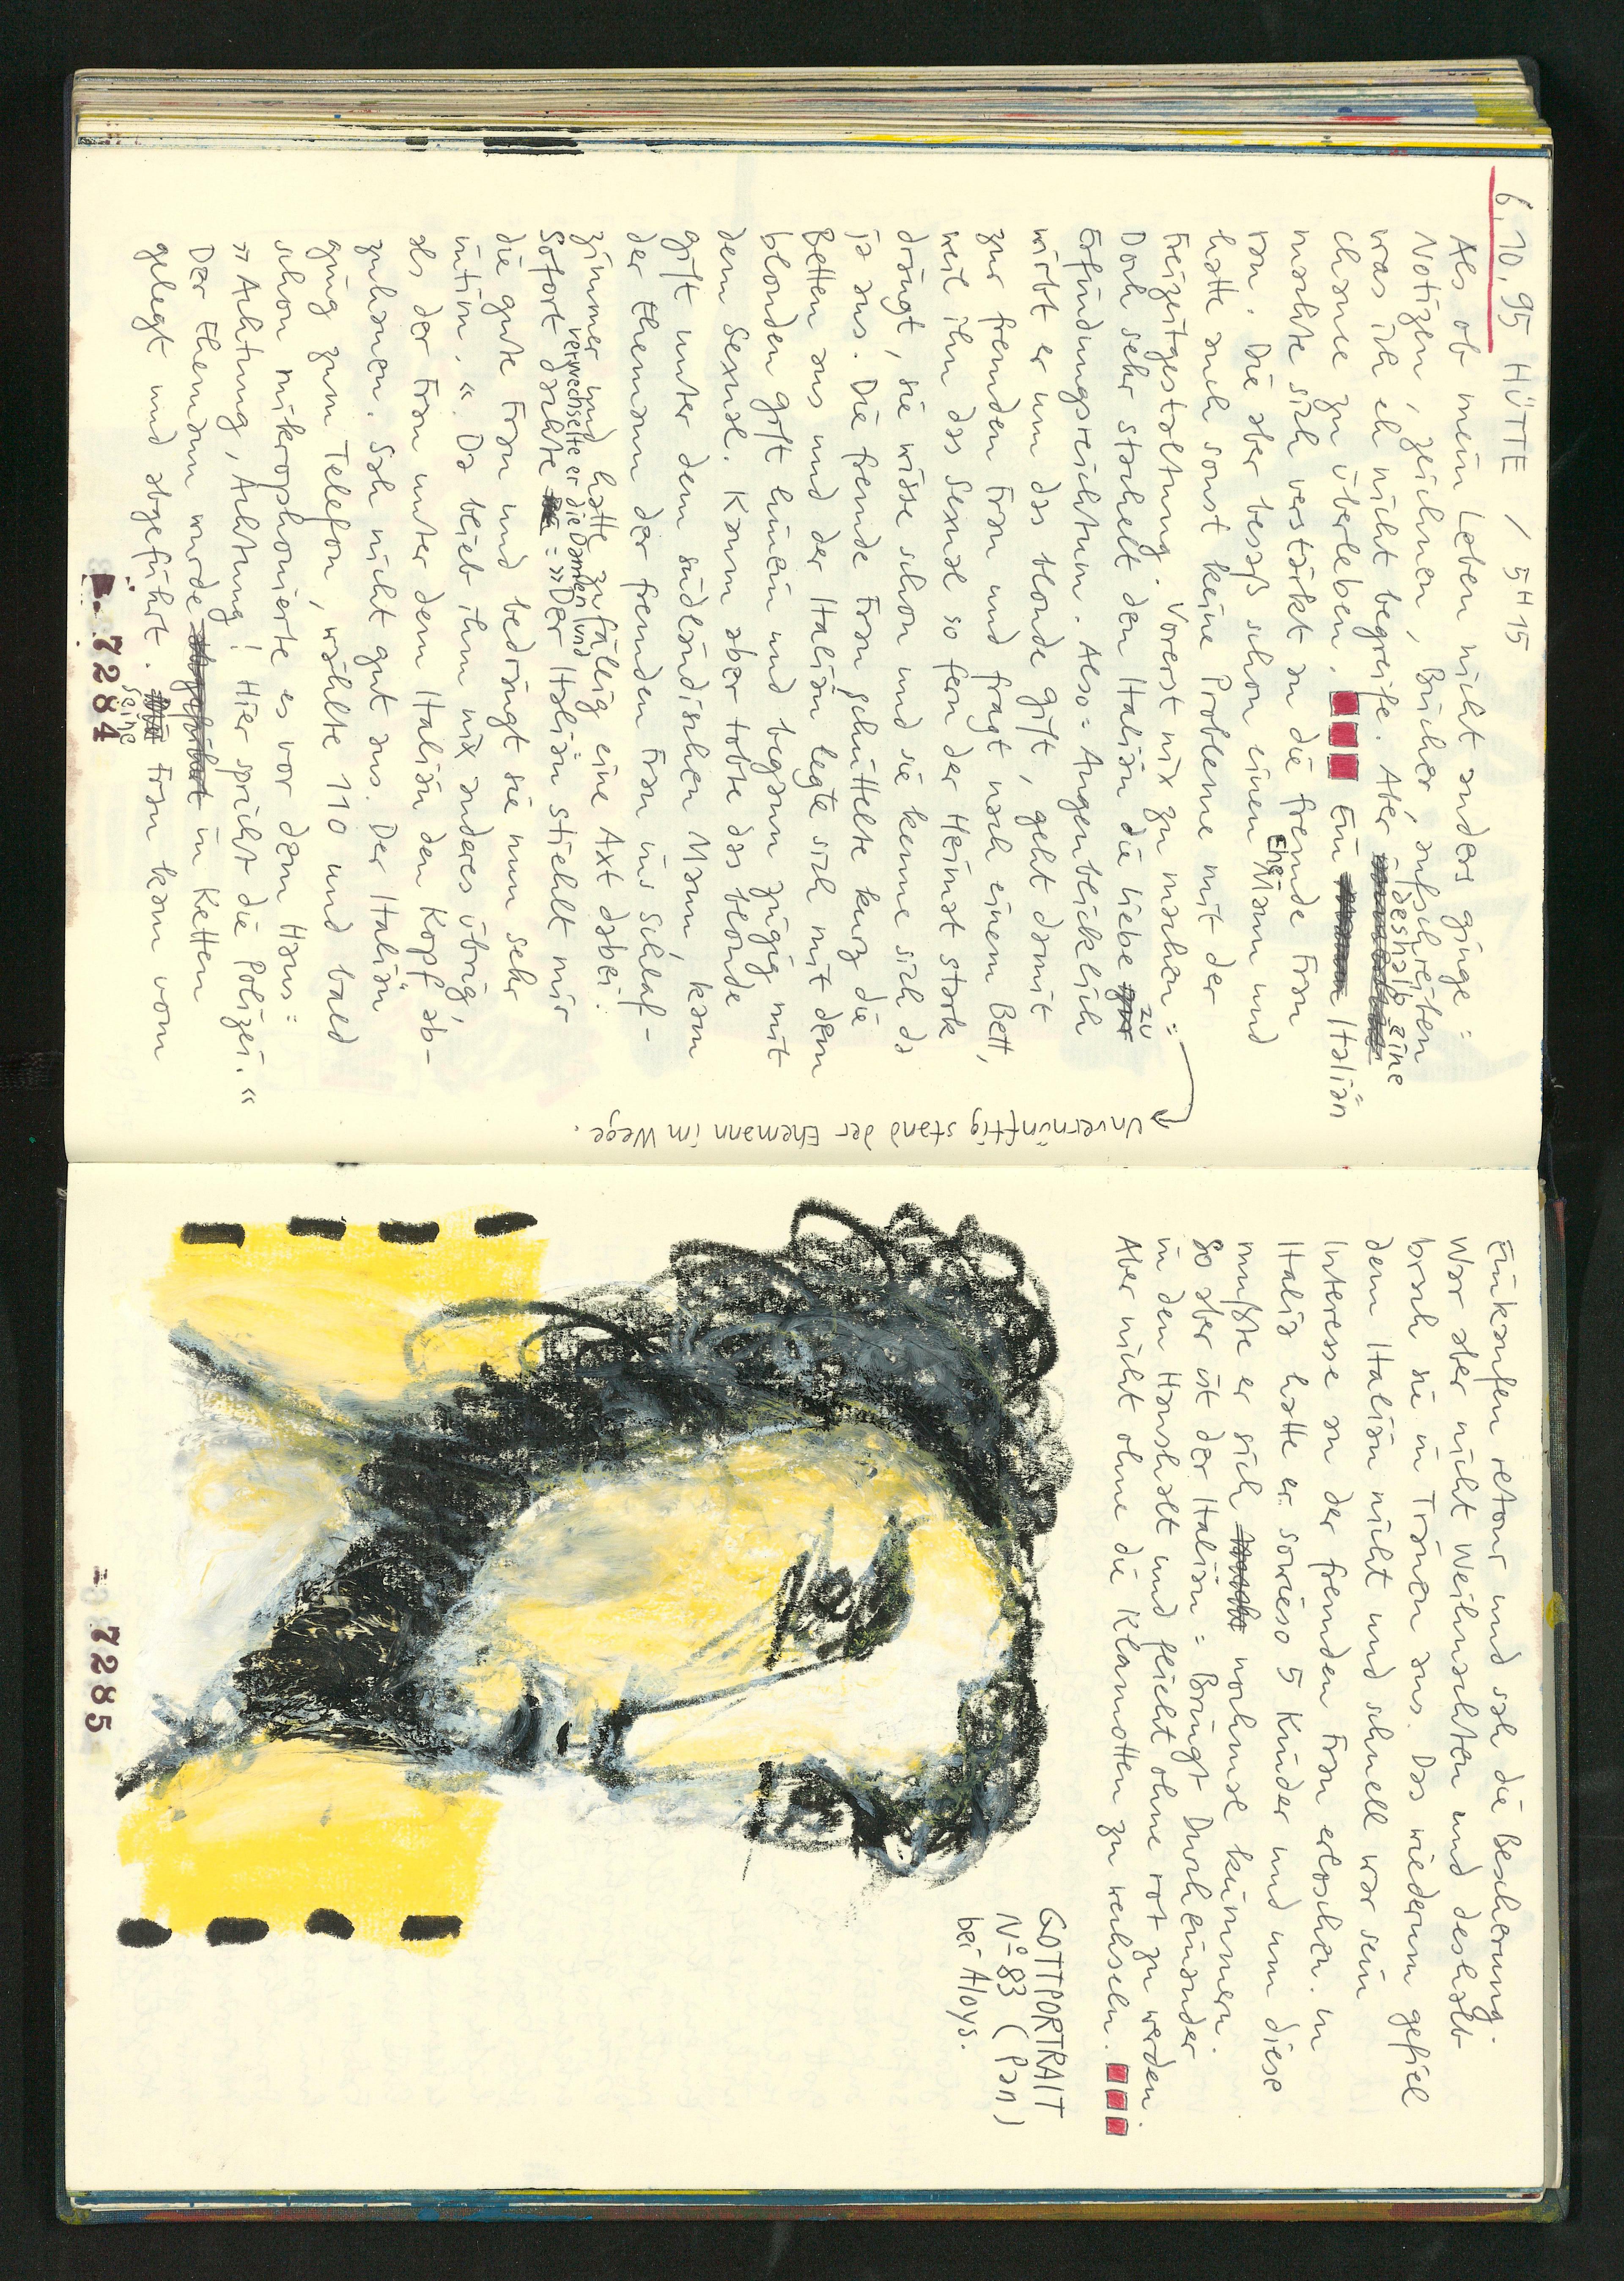 6.10.95 HÜTTE / 5H15
Als ob mein Leben nicht anders ginge =
Notizen, zeichnen, Bücher aufschreiben
was ich eh nicht begreife. Aber deshalb eine
chance zu überleben. Ein Italiän
machte sich verstärkt an die fremde Frau
ran. Die aber besaß schon einen EheMann und
hatte auch sonst keine Probleme mit der
Freizeitgestaltung. Vorerst nix zu machen =
Unvernünftig stand der Ehemann im Wege.
Doch sehr stachelt den Italiän die Liebe zu
Erfindungsreichtum. Also = Augenblicklich
wirbt er um das blonde Gift, geht damit
zur fremden Frau und fragt nach einem Bett,
weil ihn das Sexual so fern der Heimat stark
drängt, sie wisse schon und sie kenne sich da
ja aus. Die fremde Frau schüttelte kurz die
Betten aus und der Italiän legte sich mit dem
blonden Gift hinein und begann zügig mit
dem Sexual. Kaum aber tobte das blonde
Gift unter dem südländischen Mann, kam
der Ehemann der fremden Frau ins Schlaf-
zimmer und hatte zufällig eine Axt dabei.
Sofort verwechselte er die Damen und dachte = »Der Italiän stiehlt mir
die gute Frau und bedrängt sie nun sehr
intim.«. Da blieb ihm nix anderes übrig,
als der Frau unter dem Italiän den Kopf ab-
zuhauen. Sah nicht gut aus. Der Italiän
ging zum Telefon, wählte 110 und bald
schon mikrophonierte es vor dem Haus =
»Achtung, Achtung! Hier spricht die Polizei.«
Der Ehemann wurde in Ketten
gelegt und abgeführt. seine Frau kam vom
7284
Einkaufen retour und sah die Bescherung.
War aber nicht Weihnachten und deshalb
brach sie in Tränen aus. Das wiederum gefiel
dem Italiän nicht und schnell war sein
Interesse an der fremden Frau erloschen. In
Italia hatte er sowieso 5 Kinder und um diese
mußte er sich nochmal kümmern.
So aber ist der Italiän = Bringt Durcheinander
in den Haushalt und flieht ohne rot zu werden.
Aber nicht ohne die Klamotten zu wechseln.
GOTTPORTRAIT
Nº 83 (Pan)
bei Aloys.
7285